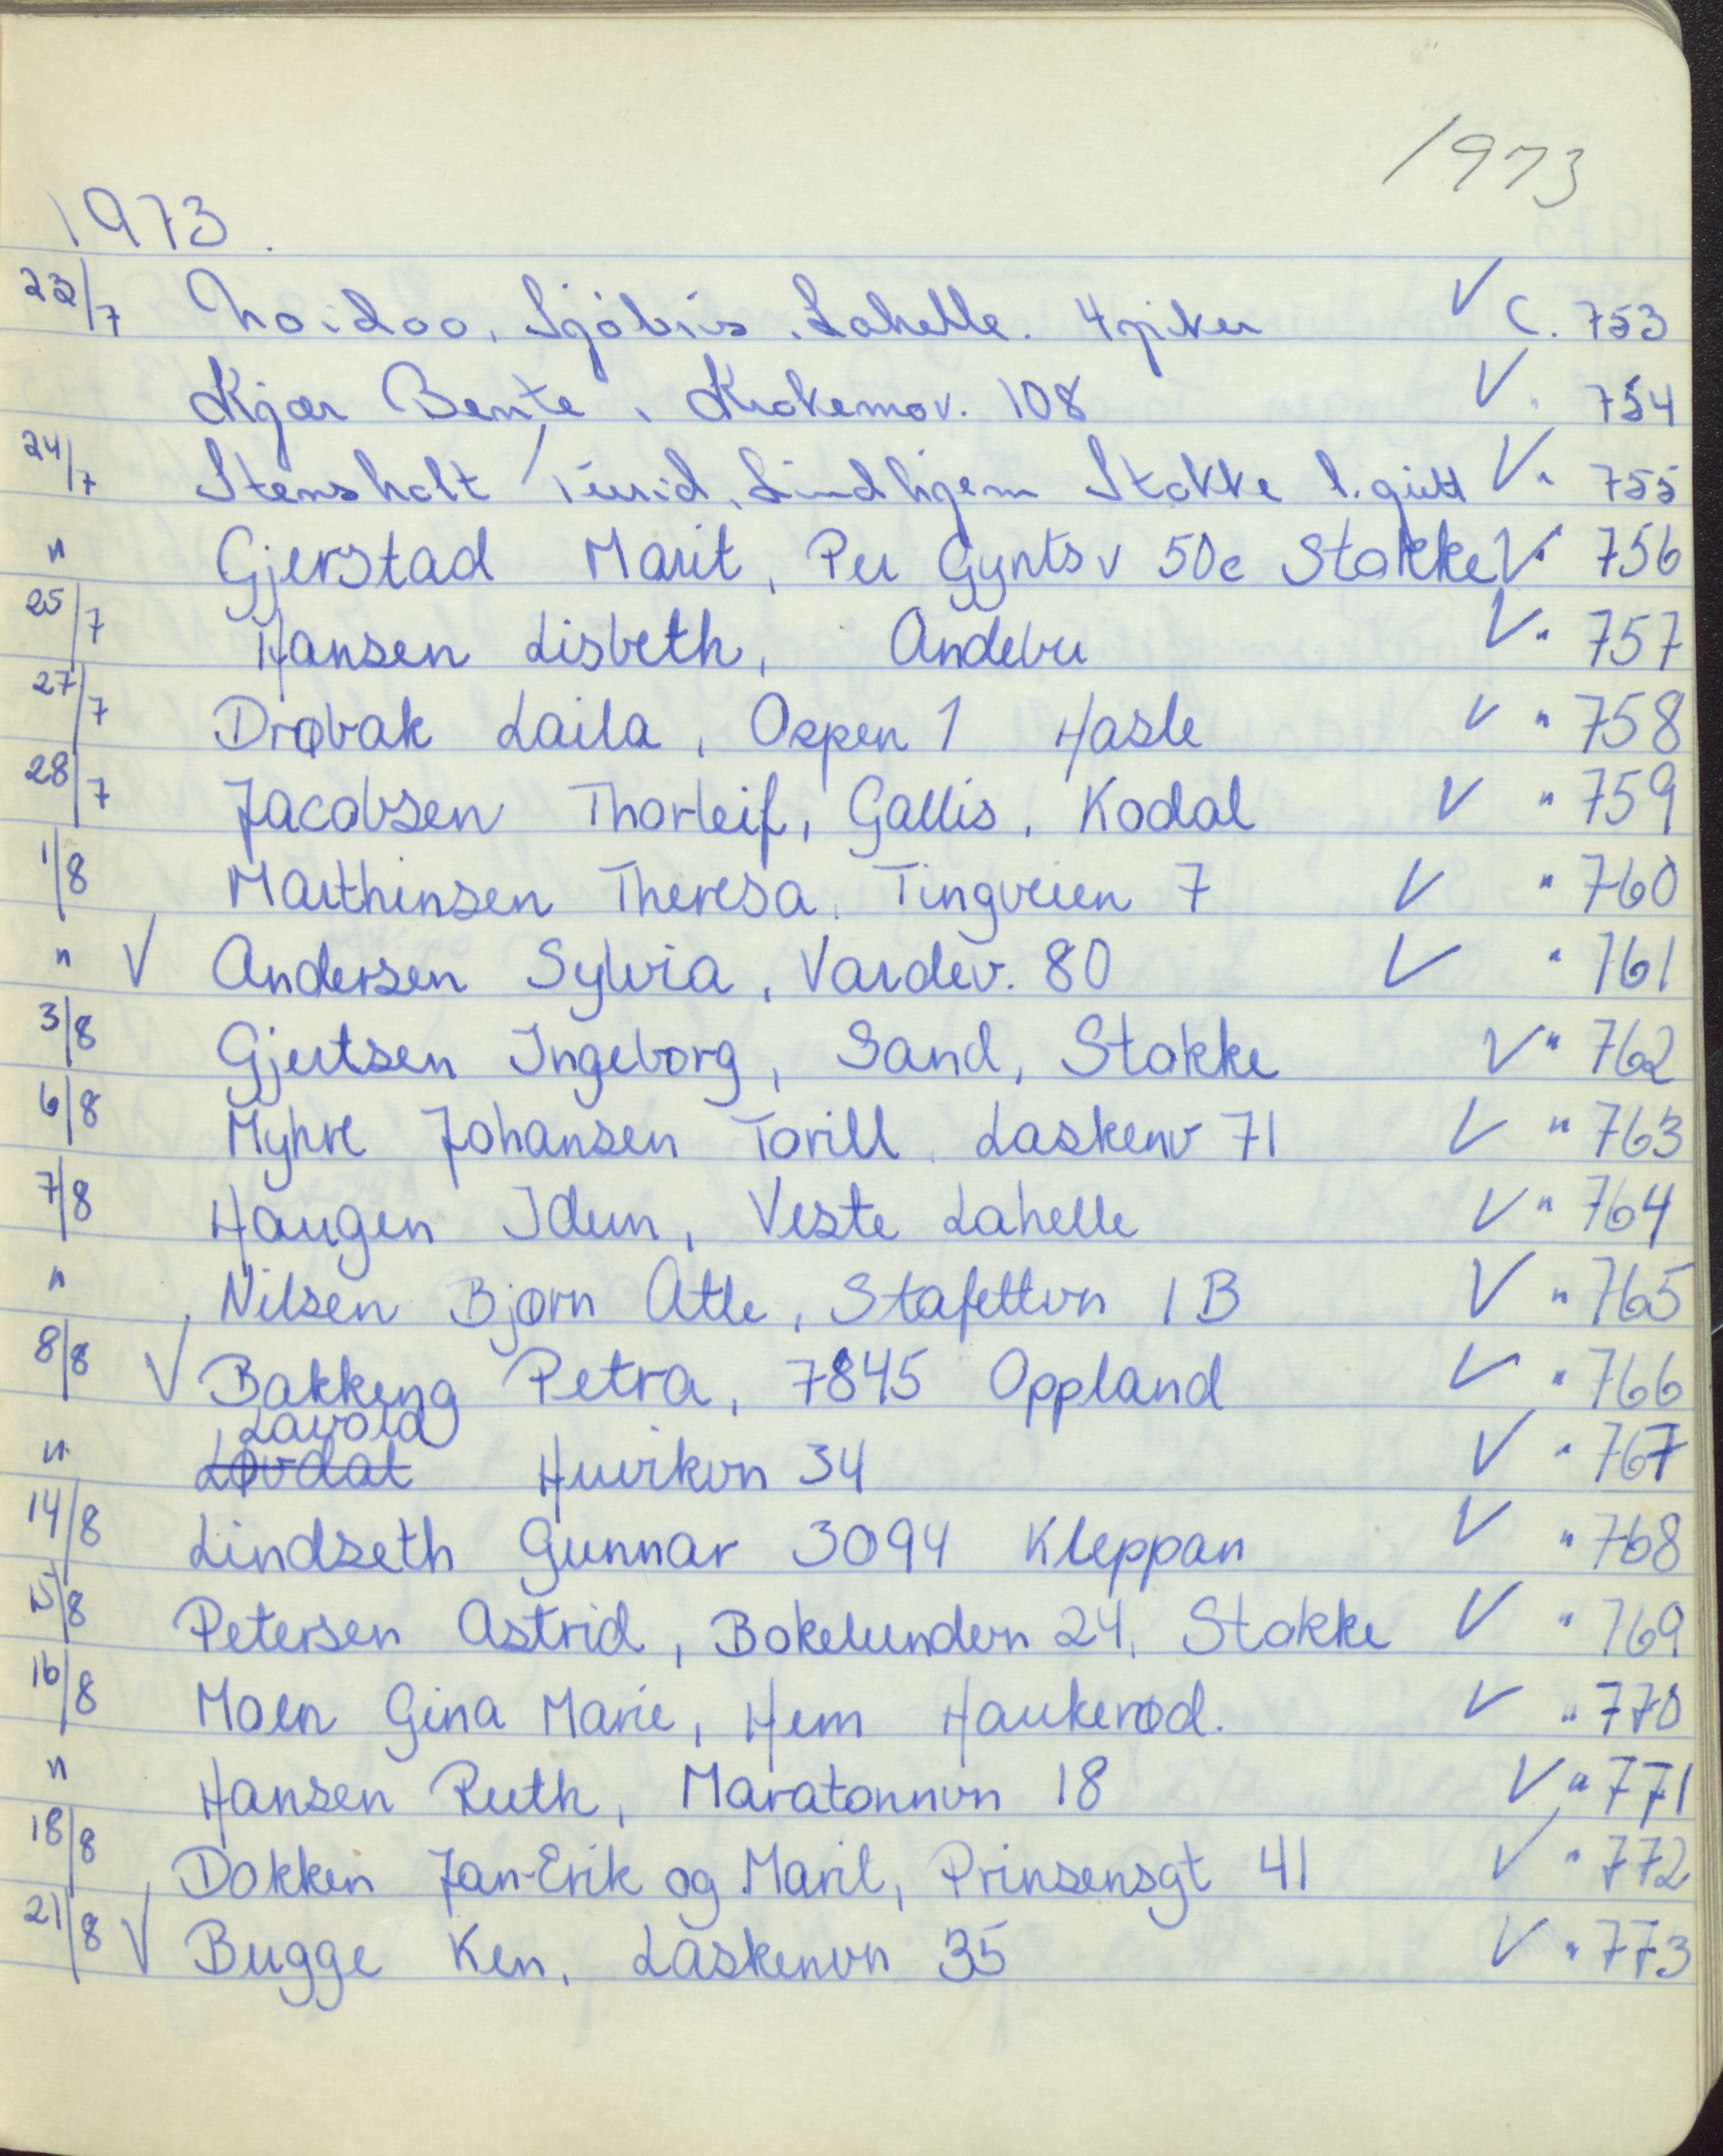 1973
1973.
23/7 Naidoo, Sjøbris, Lahelle. 4 piker V C. 753
Kjær Bente, Krokemov. 108 V " 754
24/7 Stensholt Turid, Lindhjem Stokke 1. gutt V " 755
" Gjerstad Marit, Per Gynts v 50c Stokke V " 756
25/7 Hansen Lisbeth, Andebu V " 757
27/7 Drøbak Laila, Ospen 1 Hasle V " 758
28/7 Jacobsen Thorleif, Gallis, Kodal V " 759
1/8 Marthinsen Theresa. Tingveien 7 V " 760
" V Andersen Sylvia, Vardev. 80 V " 761
3/8 Gjertsen Ingeborg, Sand, Stokke V " 762
6/8 Myhre Johansen Torill. Laskenv 71 V " 763
7/8 Haugen Idun, Veste Lahelle V " 764
" Nilsen Bjørn Atle, Stafettvn 1B V " 765
8/8 V Bakkeng Petra, 7845 Oppland V " 766
Lavold
" Løvdat Huvikvn 34 V " 767
14/8 Lindseth Gunnar 3094 Kleppan V " 768
15/8 Petersen Astrid, Bøkelunden 24, Stokke V " 769
16/8 Moen Gina Marie, Hem Haukerød. V " 770
" Hansen Ruth, Maratonnvn 18 V " 771
18/8 Dokken Jan-Erik og Maril, Prinsensgt 41 V " 772
21/8 V Bugge Ken, Laskenvn 35 V " 773